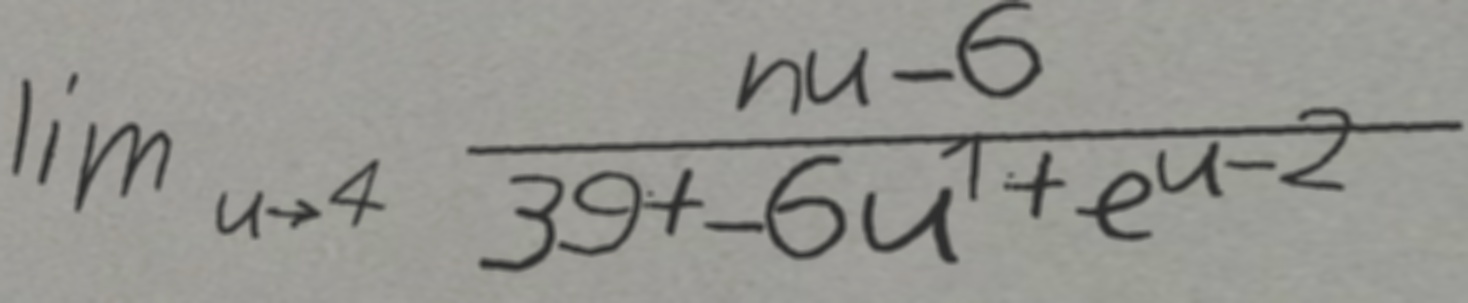 \lim_{u \to 4} \frac{nu-6}{39+-6u^1+e^{u-2}}